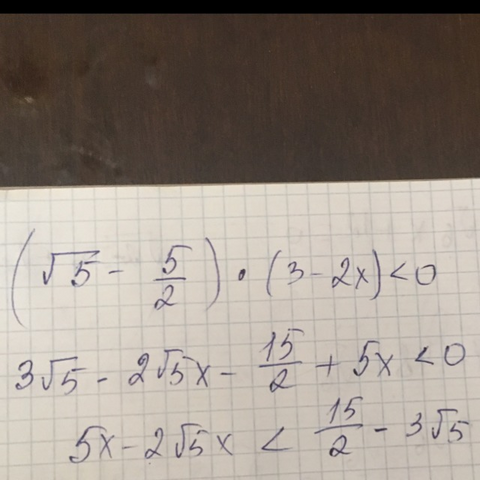 (√5 - 5/2) · (3 - 2x) < 0
3√5 - 2√5x - 15/2 + 5x < 0
5x - 2√5x < 15/2 - 3√5